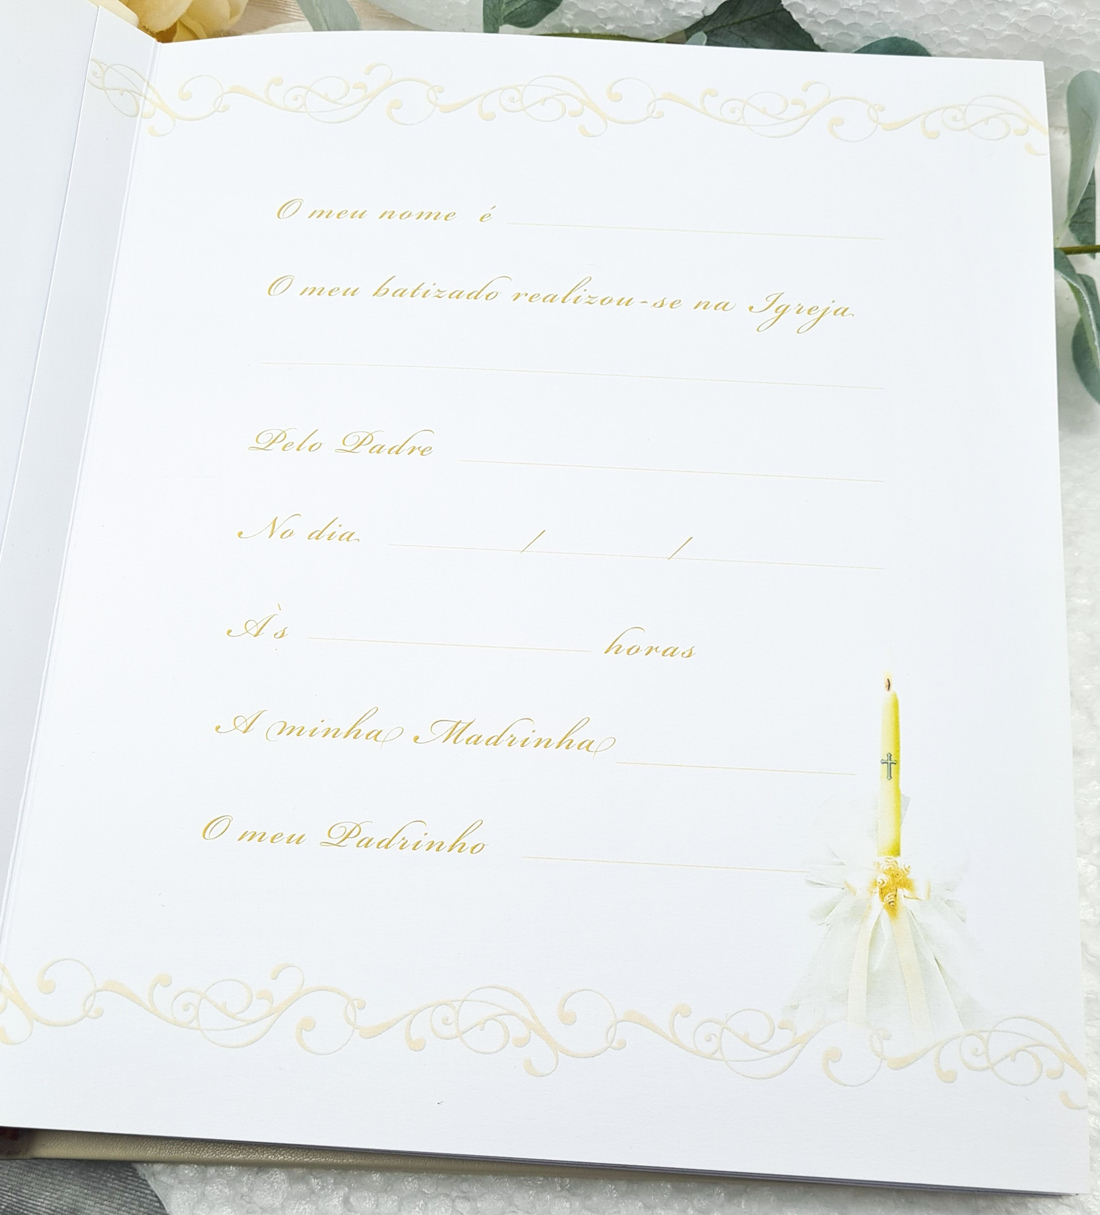 O meu nome é
O meu batizado realizou-se na Igreja
Pelo Padre
No dia / /
Às horas
A minha Madrinha
O meu Padrinho